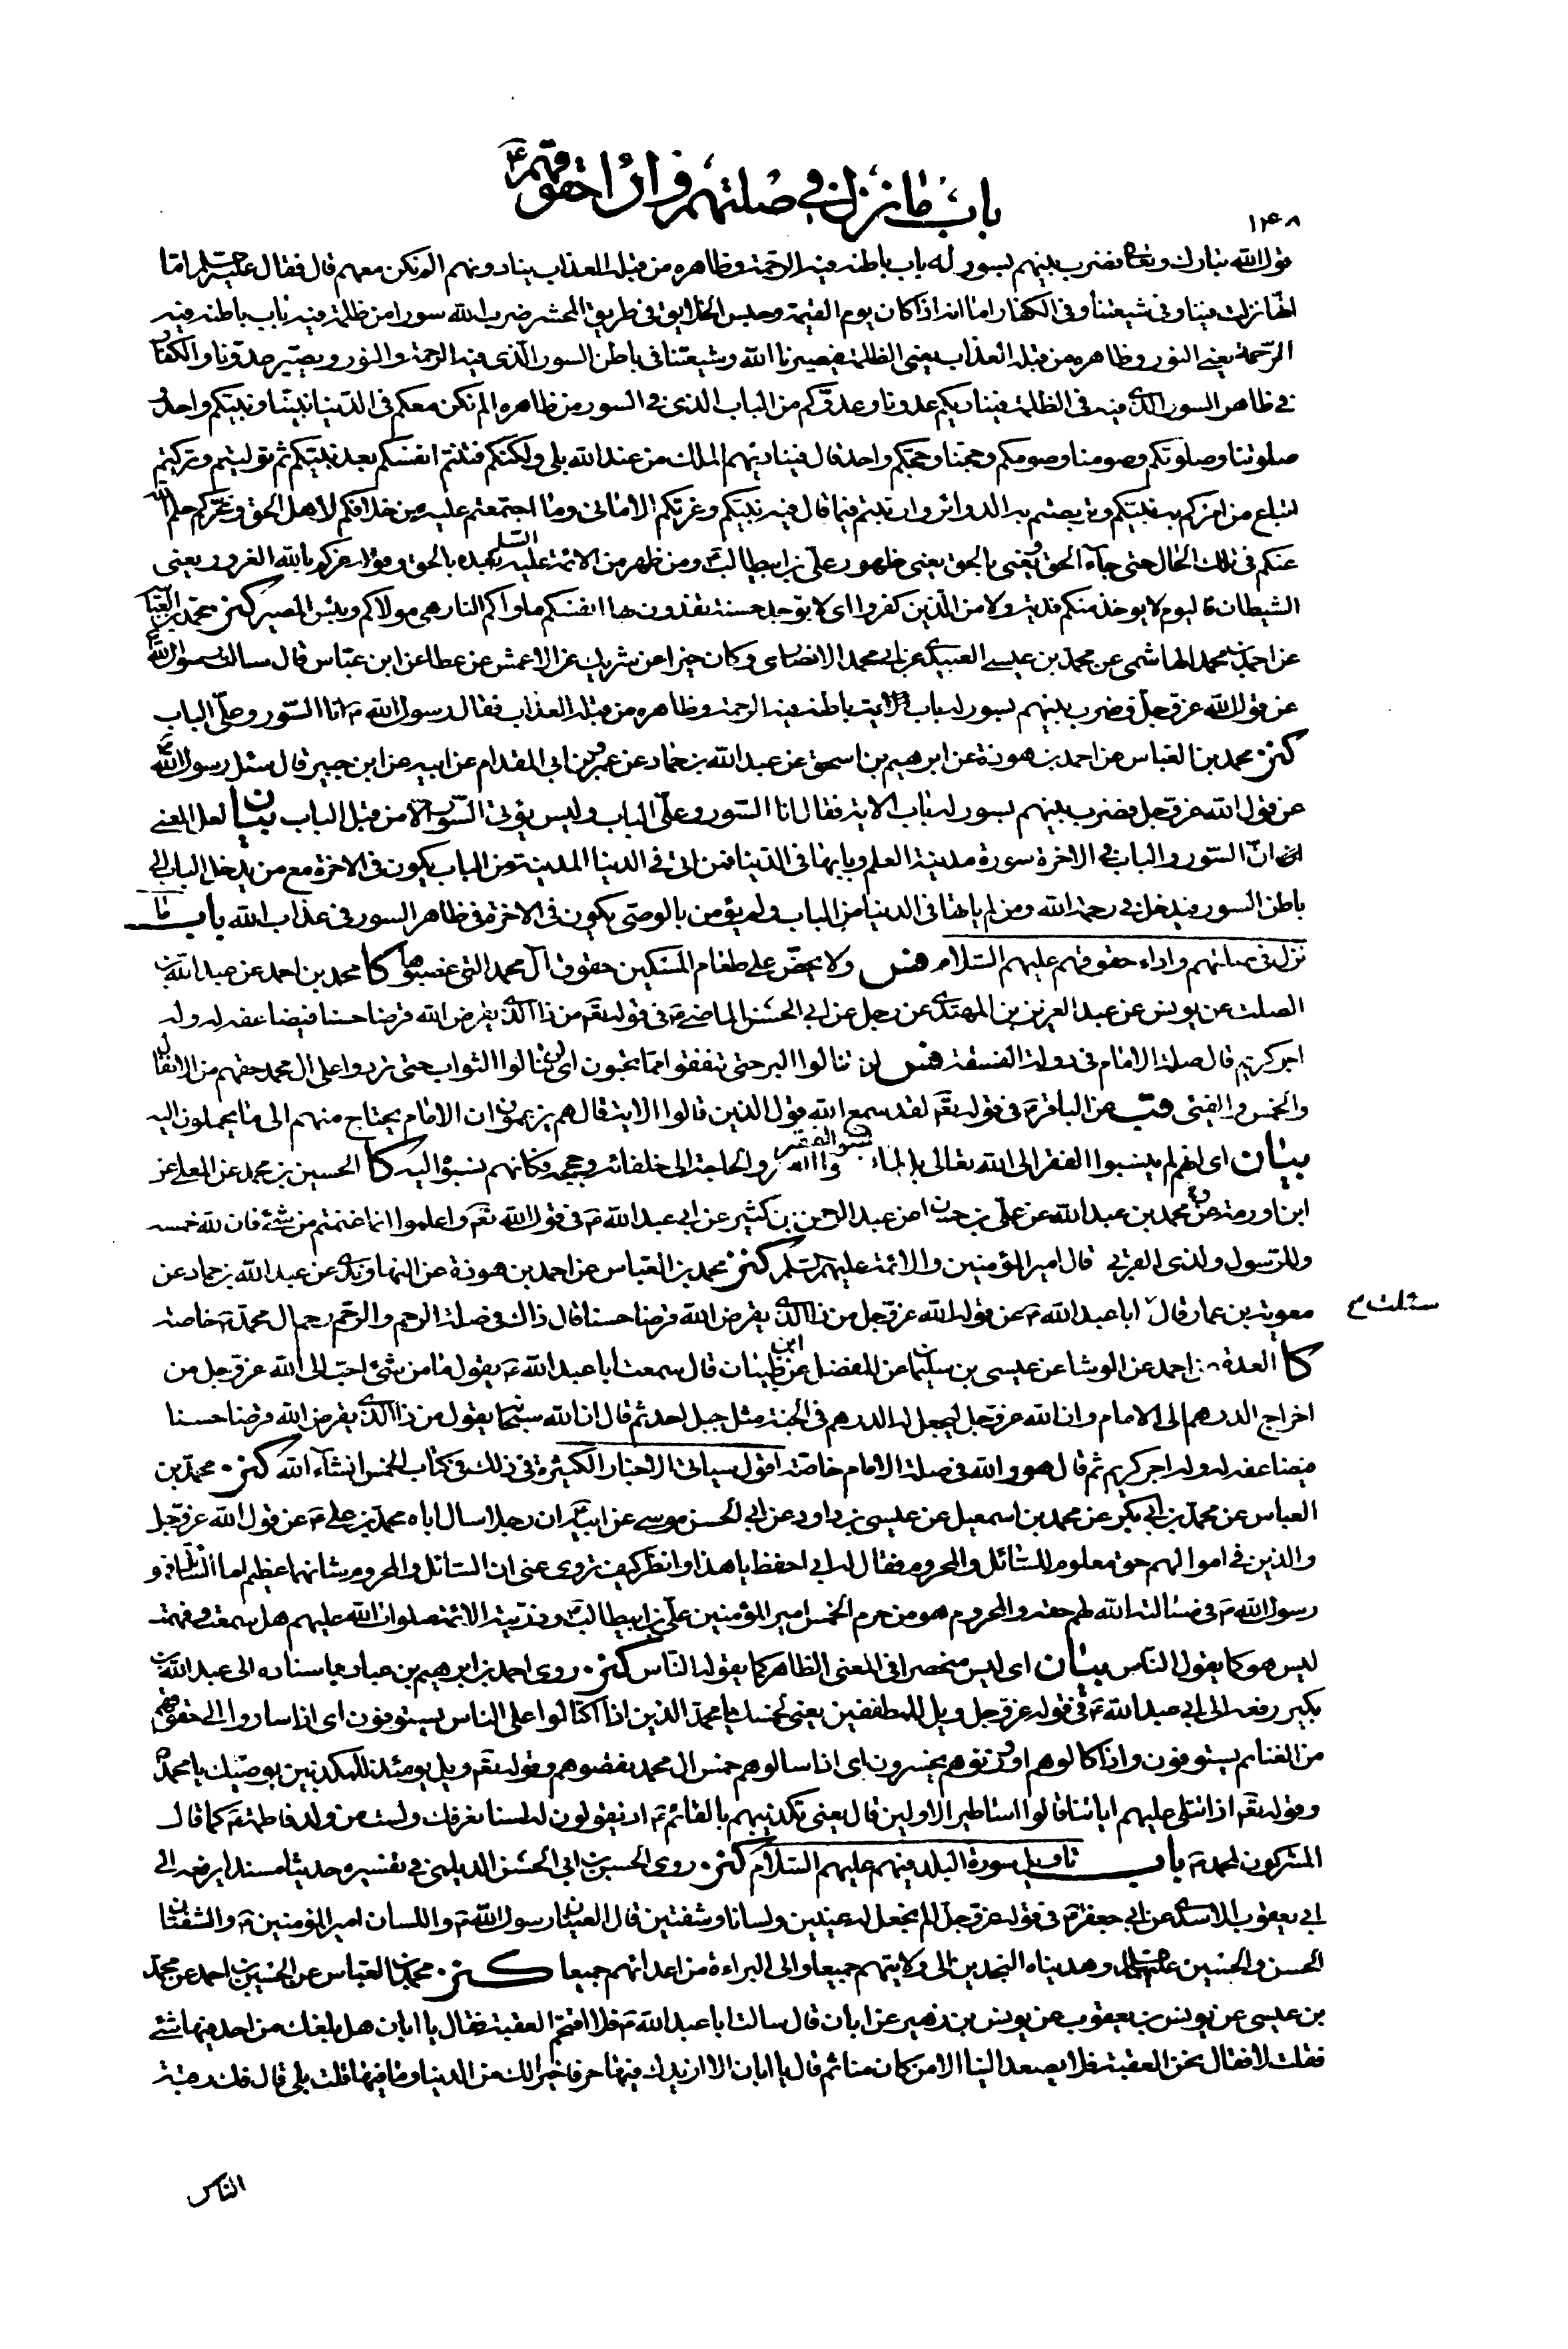 باب ما نزل في صلتهم و اداء حقوقهم ع
۱۴۸
قول الله تبارك وتعالى فضرب بينهم بسور له باب باطنه فيه الرحمة وظاهره من قبله العذاب ينادونهم الم نكن معكم قال فقال عليه السلم اما
انها نزلت فينا وفي شيعتنا وفي الكفار اما انه اذا كان يوم القيمة وحبس الخلايق في طريق المحشر ضرب الله سورا من ظلمة فيه باب باطنه فيه
الرحمة يعني النور وظاهره من قبله العذاب يعني الظلمة فيصيرنا الله وشيعتنا في باطن السور الذي فيه الرحمة والنور ويصير عدونا والكفار
في ظاهر السور الذي فيه الظلمة فيناديكم عدونا وعدوكم من الباب الذي في السور من ظاهره الم نكن معكم في الدنيا نبينا ونبيكم واحد و
صلوتنا وصلوتكم وصومنا وصومكم وحجنا وحجكم واحد قال فيناديهم الملك من عند الله بلى ولكنكم فتنتم انفسكم بعد نبيكم ثم توليتم وتركتم
اتباع من امركم به نبيكم وتربصتم به الدوائر وارتبتم فيما قال فيه نبيكم وغرتكم الاماني وما اجتمعتم عليه من خلافكم لاهل الحق وغركم حلم الله
عنكم في تلك الحال حتى جاء الحق ويعني بالحق يعني ظهور علي بن ابيطالب ع ومن ظهر من الائمة عليهم السلم بعده بالحق وقوله غركم بالله الغرور يعني
الشيطان فاليوم لا يوخذ منكم فدية ولا من الذين كفروا اى لا يوجد حسنة تفدون بها انفسكم ماواكم النار هي مولاكم وبئس المصير كنز محمد بن العباس
عن احمد بن محمد الهاشمي عن محمد بن عيسى العبيدي عن ابي محمد الانصاري وكان خيرا عن شريك عن الاعمش عن عطا عن ابن عباس قال سالت رسول الله
عن قول الله عز وجل فضرب بينهم بسور له باب الاية باطنه فيه الرحمة وظاهره من قبله العذاب فقال رسول الله ص انا السور وعلي الباب
كنز محمد بن العباس عن احمد بن هوذة عن ابرهيم بن اسحق عن عبد الله بن حماد عن عمرو بن ابي المقدام عن ابيه عن ابن جبير قال سئل رسول الله ص
عن قول الله عز وجل فضرب بينهم بسور له باب الاية فقال انا السور وعلي الباب وليس يؤتى السور الا من قبل الباب بيان لعل المعنى
ان السور والباب في الاخرة سورة مدينة العلم وبابها في الدنيا فمن اتى في الدنيا المدينة من الباب يكون في الاخرة مع من يدخل الباب الى
باطن السور فيدخل في رحمة الله ومن لم ياتها في الدنيا من الباب ولم يؤمن بالوصي يكون في الاخرة في ظاهر السور في عذاب الله باب ما
نزل في صلتهم واداء حقوقهم عليهم السلام فس ولا يحض على طعام المسكين حقوق آل محمد التي غصبوها كا محمد بن احمد عن عبد الله بن
الصلت عن يونس عن عبد العزيز بن المهتدي عن رجل عن ابي الحسن الماضي ع في قوله تعم من ذا الذي يقرض الله قرضا حسنا فيضاعفه له وله
اجر كريم قال صلة الامام في دولة الفسقة فس لن تنالوا البر حتى تنفقوا مما تحبون اى لن تنالوا الثواب حتى تردوا على ال محمد حقهم من الانفال
والخمس والفئ قب عن الباقر ع في قوله تعم لقد سمع الله قول الذين قالوا الاية قال هم يزعمون ان الامام يحتاج منهم الى ما يحملون اليه
بيان اى انهم لم ينسبوا الفقر الى الله تعالى بل لما نسبوا الفقر والحاجة الى خلفائه وحججه فكانهم نسبوا اليه كا الحسين بن محمد عن المعلى عن
ابن اورمة عن محمد بن عبد الله عن علي بن حسان عن عبد الرحمن بن كثير عن ابي عبد الله ع في قول الله تعم واعلموا انما غنمتم من شئ فان لله خمسه
وللرسول ولذي القربى قال امير المؤمنين والائمة عليهم السلم كنز محمد بن العباس عن احمد بن هوذة عن النهاوندي عن عبد الله بن حماد عن
معوية بن عمار قال ابا عبد الله ع عن قول الله عز وجل من ذا الذي يقرض الله قرضا حسنا قال ذاك في صلة الرحم والرحم رحم ال محمد ع خاصة
سئلت
كا العدة عن احمد عن الوشا عن عيسى بن سليمان عن المفضل عن ابن ظبيان قال سمعت ابا عبد الله ع يقول ما من شئ احب الى الله عز وجل من
اخراج الدرهم الى الامام وان الله عز وجل ليجعل له الدرهم في الجنة مثل جبل احد ثم قال ان الله سبحانه يقول من ذا الذي يقرض الله قرضا حسنا
فيضاعفه له وله اجر كريم ثم قال هو والله في صلة الامام خاصة اقول سياتي الاخبار الكثيرة في ذلك في كتاب الخمس انشاء الله كنز محمد بن
العباس عن محمد بن ابي بكر عن محمد بن اسمعيل عن عيسى بن داود عن ابي الحسن موسى عن ابيه ع ان رجلا سال اباه محمد بن علي ع عن قول الله عز وجل
والذين في اموالهم حق معلوم للسائل والمحروم فقال له ابي احفظ يا هذا وانظر كيف تروى عني ان السائل والمحروم شانهما عظيم اما السائل فهو
رسول الله ص في مسالته الله لهم حقه والمحروم هو من حرم الخمس امير المؤمنين علي بن ابيطالب ع وذريته الائمة صلوات الله عليهم هل سمعت وفهمت
ليس هو كما يقول الناس بيان اى ليس منحصرا في المعنى الظاهر كما يقوله الناس كنز روى احمد بن ابرهيم بن عباد باسناده الى عبد الله بن
بكير رفعه الى ابي عبد الله ع في قوله عز وجل ويل للمطففين يعني لخمسك يا محمد الذين اذا اكتالوا على الناس يستوفون اى اذا ساروا الى حقوقهم
من الغنايم يستوفون واذا كالوهم او وزنوهم يخسرون اى اذا سالوهم خمس ال محمد نقصوهم وقوله تعم ويل يومئذ للمكذبين بوصيك يا محمد
وقوله تعم اذا تتلى عليهم اياتنا قالوا اساطير الاولين قال يعني تكذيبهم بالقائم ع اذ يقولون له لسنا نعرفك ولست من ولد فاطمة ع كما قال
المشركون لمحمد ص باب تاويل سورة البلد فيهم عليهم السلام كنز روى الحسن بن ابي الحسن الديلمي في تفسيره حديثا مسندا يرفعه الى
ابي يعقوب الاسدي عن ابي جعفر ع في قوله عز وجل الم نجعل له عينين ولسانا وشفتين قال العينان رسول الله ص واللسان امير المؤمنين ع والشفتان
الحسن والحسين عليهما السلم وهديناه النجدين الى ولايتهم جميعا والى البراءة من اعدائهم جميعا كنز محمد بن العباس عن الحسين بن احمد عن محمد
بن عيسى عن يونس بن يعقوب عن يونس بن زهير عن ابان قال سالت ابا عبد الله ع فلا اقتحم العقبة فقال يا ابان هل بلغك من احد فيها شئ
فقلت لا فقال نحن العقبة فلا يصعد الينا الا من كان منا ثم قال يا ابان الا ازيدك فيها حرفا خير لك من الدنيا وما فيها قلت بلى قال فك رقبة
الناس